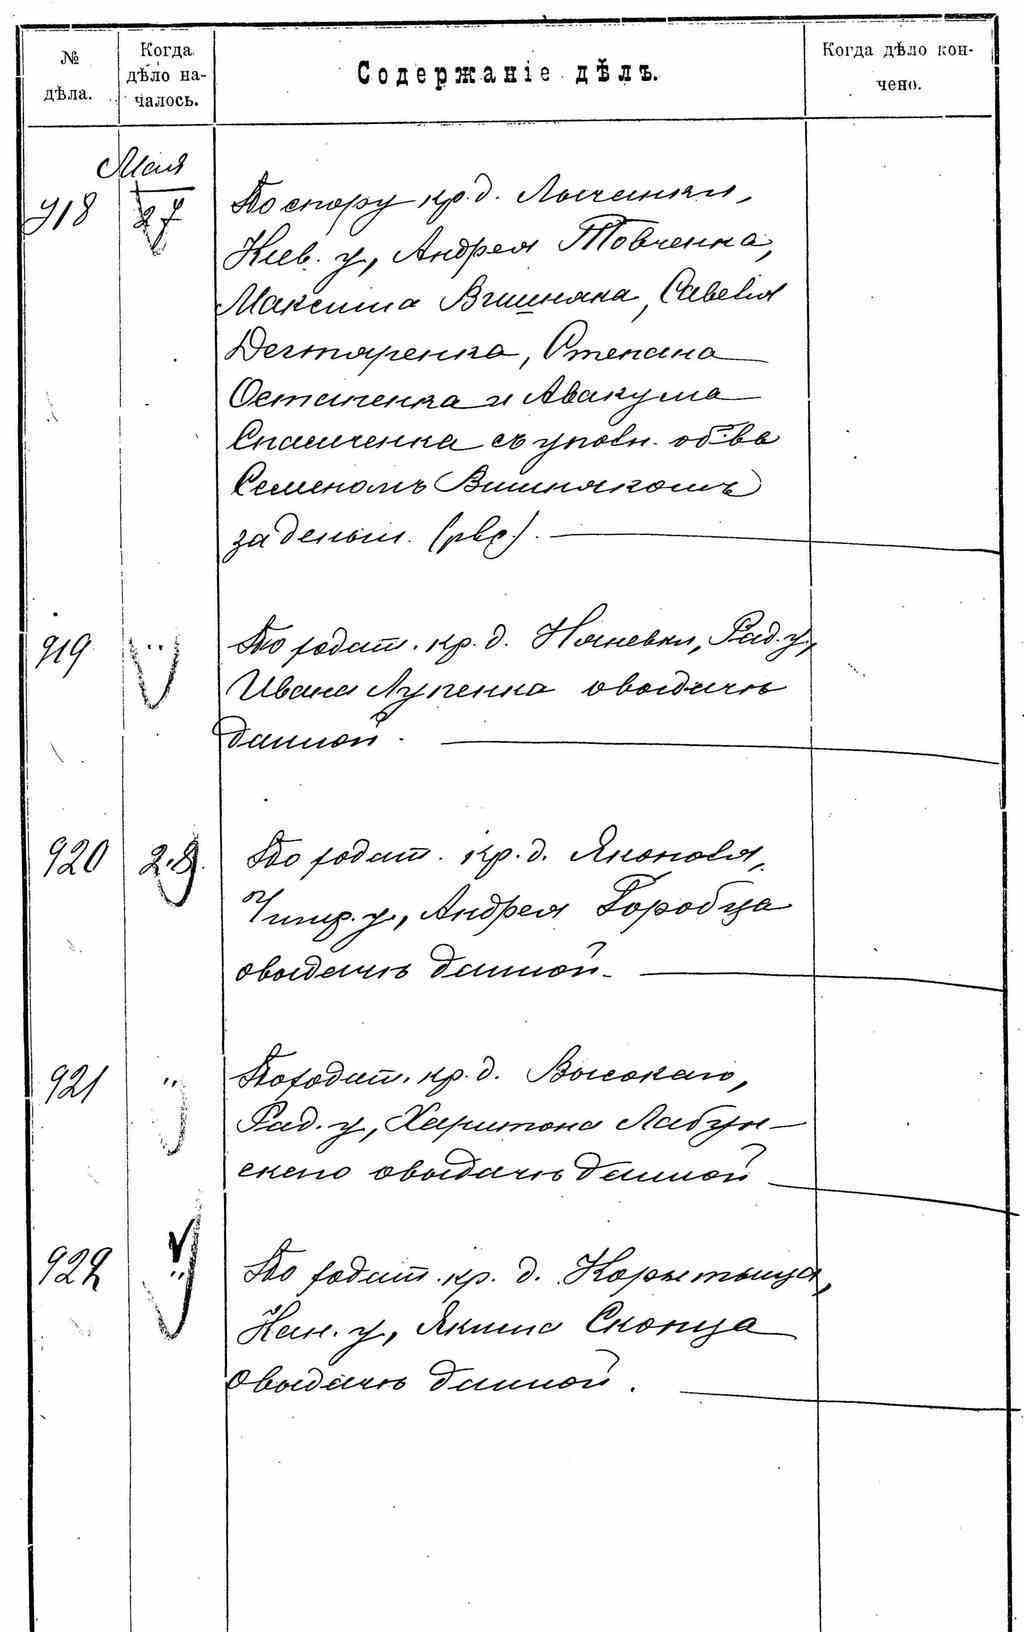 № дѣла.
Когда дѣло на-
чалось.
Содержаніе дѣлъ.
Когда дѣло кон-
чено.
Мая
918 27 По спору кр. д. Лычанки,
Кіев. у., Андрея Товченка,
Максима Вишняка, Савелія
Дегтяренка, Степана
Остапенка и Авакума
съ уполн. об-ва
Семеномъ Вишнякомъ
за деньги.
919 " По ходат. кр. д. Рад. у.,
Ивана Лупенка о выдачѣ
данной.
920 28. По ходат. кр. д. Яновки,
Чигир. у., Андрея Горобца
о выдачѣ данной.
921 " По ходат. кр. д. Высокаго,
Рад. у., Харитона Лабун-
скаго о выдачѣ данной
922 " По ходат. кр. д. Корытыща,
Кан. у., Якима Скопца
о выдачѣ данной.